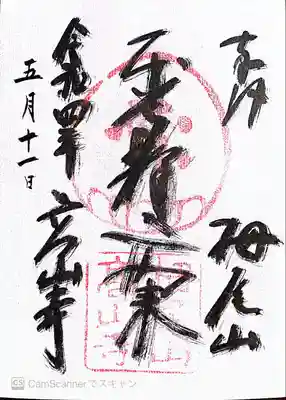 奉拝
栂尾山
令和四年
高山寺
五月十一日
CS CamScannerでスキャン